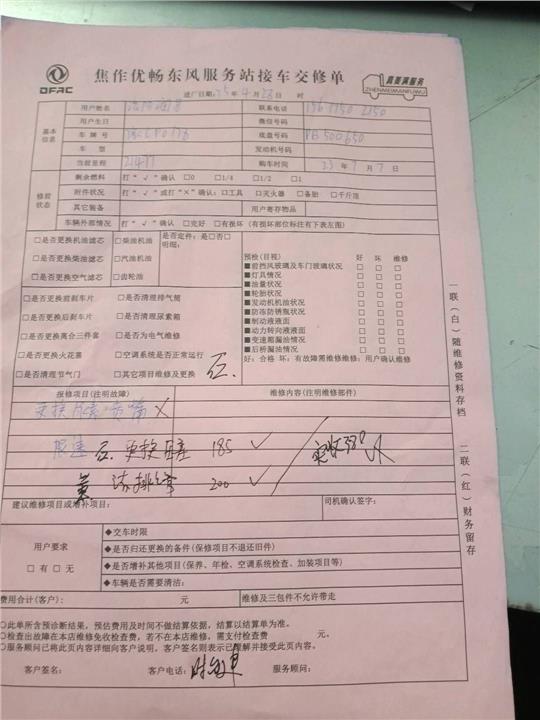 DFAC
焦作优畅东风服务站接车交修单
真美满服务
ZHENMEIMANFUWU
进厂日期:23年4月28日 时
基本信息
用户姓名
联系电话
用户生日
微信号码
车牌号
底盘号码 PB500650
车型
发动机号码
当前里程 21477
购车时间 23年7月7日
修前状态
剩余燃料 打“√”确认 □0 □1/4 □1/2 □1
附件状况 打“√”或打“×”确认:□工具 □灭火器 □备胎 □千斤顶
其它装备
用户寄存物品
车辆外部情况 打“√”确认 □完好 □有损坏(有损坏部位标注有下表左图)
□是否更换机油滤芯 □柴油机油 是否定件:是□否□
明细:
□是否更换柴油滤芯 □汽油机油
□是否更换空气滤芯 □齿轮油
□是否更换前刹车片 □是否清理排气筒
□是否更换后刹车片 □是否清理尿素箱
□是否更换离合三件套 □是否为电气维修
□是否更换火花塞 □空调系统是否正常运行
□是否清理节气门 □其它项目维修及更换
预检(目视) 好 坏 维修
■前挡风玻璃及车门玻璃状况 □ □ □
■灯具情况 □ □ □
■油量状况 □ □ □
■轮胎状况 □ □ □
■发动机机油状况 □ □ □
■防冻防锈瓶状况 □ □ □
■制动液液面 □ □ □
■动力转向液液面 □ □ □
■变速箱漏油情况 □ □ □
■后桥漏油情况 □ □ □
好:合格 坏:有故障需维修维修:用户确认维修
报修项目(注明故障)
维修内容(注明维修部件)
更换尿素
更换 185 √
200 √
实收380
建议维修项目或增补项目:
司机确认签字:
用户要求
□有 □无
◆交车时限
◆是否归还更换的备件(保修项目不退还旧件)
◆是否增补其他项目(保养、年检、空调系统检查、加装项目等)
◆车辆是否需要清洁:
费用合计(客户): 元
维修及三包件不允许带走
○此单所含预诊断结果,预估费用及时间不做结算依据,结算以结算单为准。
○检查出故障在本店维修免收检查费,若不在本店维修,需支付检查费 元。
○服务顾问已将此页内容详细向客户说明,客户签名则表示已理解并接受此页内容。
客户签名: 客户电话: 服务顾问:
一联(白)随维修资料存档
二联(红)财务留存